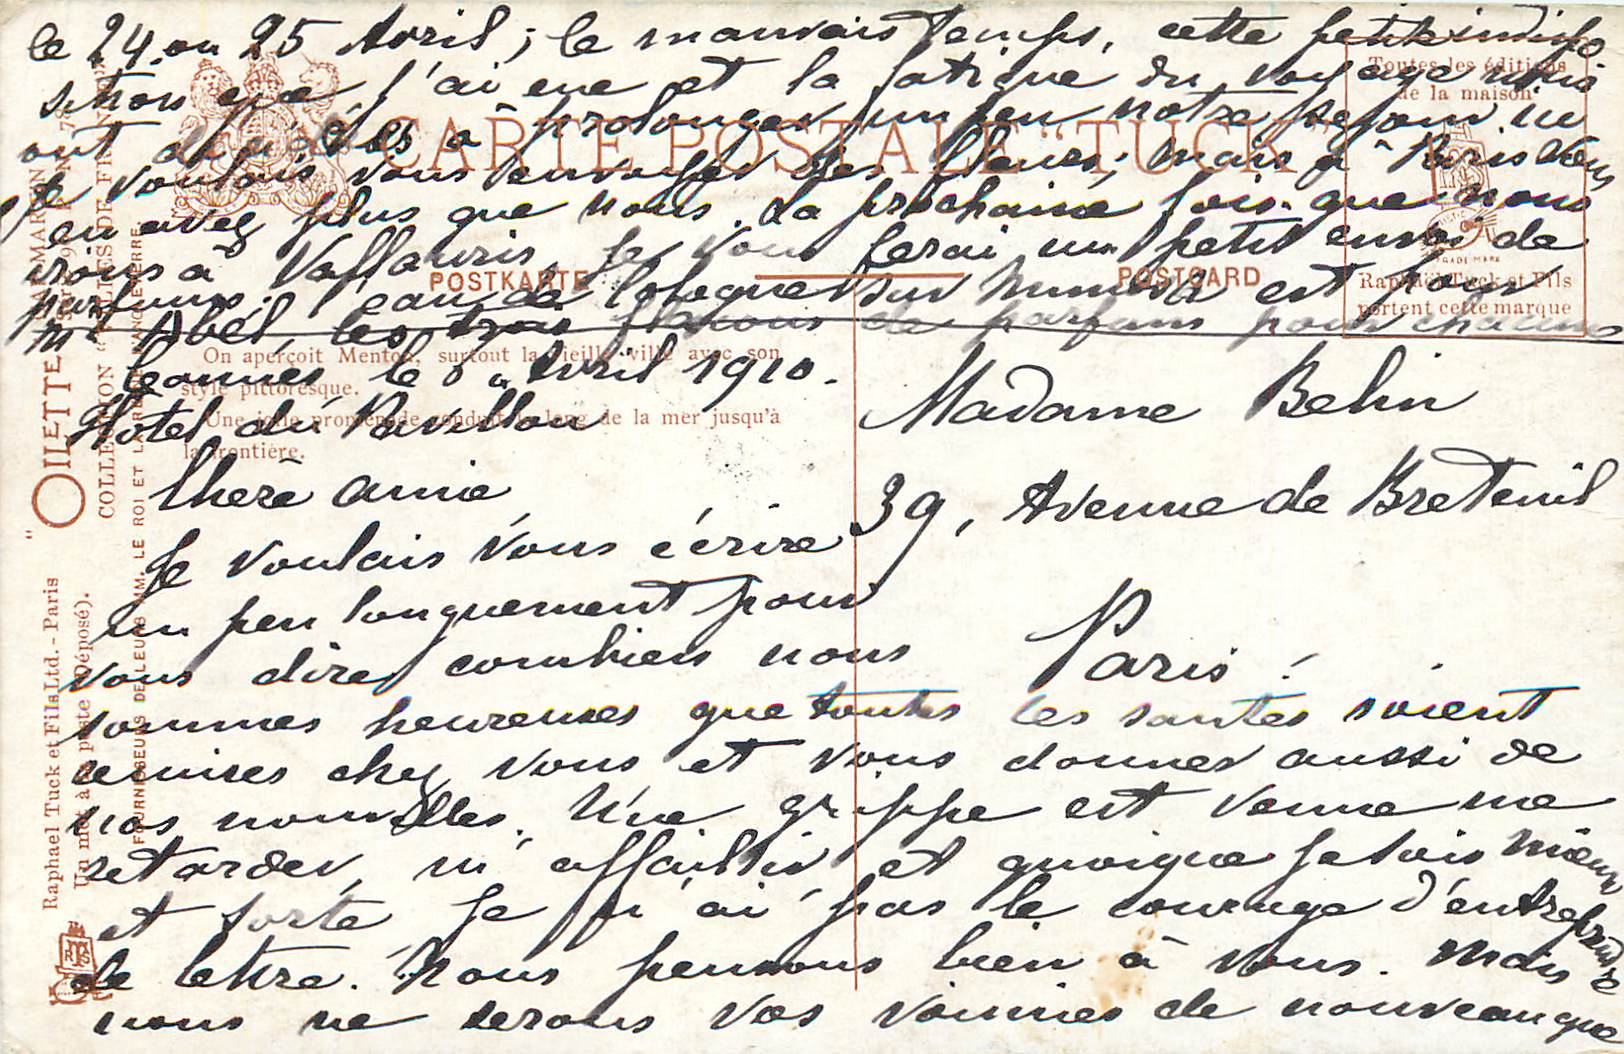 le 24 ou 25 Avril; le mauvais temps, cette petite indispo
sition que j'ai eue et la fatigue du voyage nous
ont décidés à prolonger un peu notre séjour ici
Je voulais vous envoyer des fleurs; mais à Paris vous
en avez plus que nous. La prochaine fois que nous
irons à Vallauris, je vous ferai un petit envoi de
parfums. l'eau de Cologne sur Mimosa est pour
Mr Abel, les trois flacons de parfums pour chacune
CARTE POSTALE "TUCK"
POSTKARTE
POSTCARD
Toutes les éditions
de la maison
TRADE MARK
Raphaël Tuck et Fils
portent cette marque
On aperçoit Menton, surtout la vieille ville avec son
style pittoresque.
Une jolie promenade conduit le long de la mer jusqu'à
la frontière.
"OILETTE
COLLECTION
FOURNISSEURS DE LEURS MM. LE ROI ET LA
Raphael Tuck et Fils Ltd. - Paris
Un mot à la poste (Déposé).
Cannes le 8 Avril 1910.
Hôtel du Pavillon
Chère amie
Je voulais vous écrire
un peu longuement pour
vous dire combien nous
sommes heureuses que toutes les santés soient
remises chez vous et vous donner aussi de
nos nouvelles. Une grippe est venue me
retarder, m'affaiblir et quoique je sois mieux
et sorte je n'ai pas le courage d'entreprendre
de lettre. Nous pensons bien à vous. Mais
nous ne serons vos voisines de nouveau que
Madame Belin
39, Avenue de Breteuil
Paris.